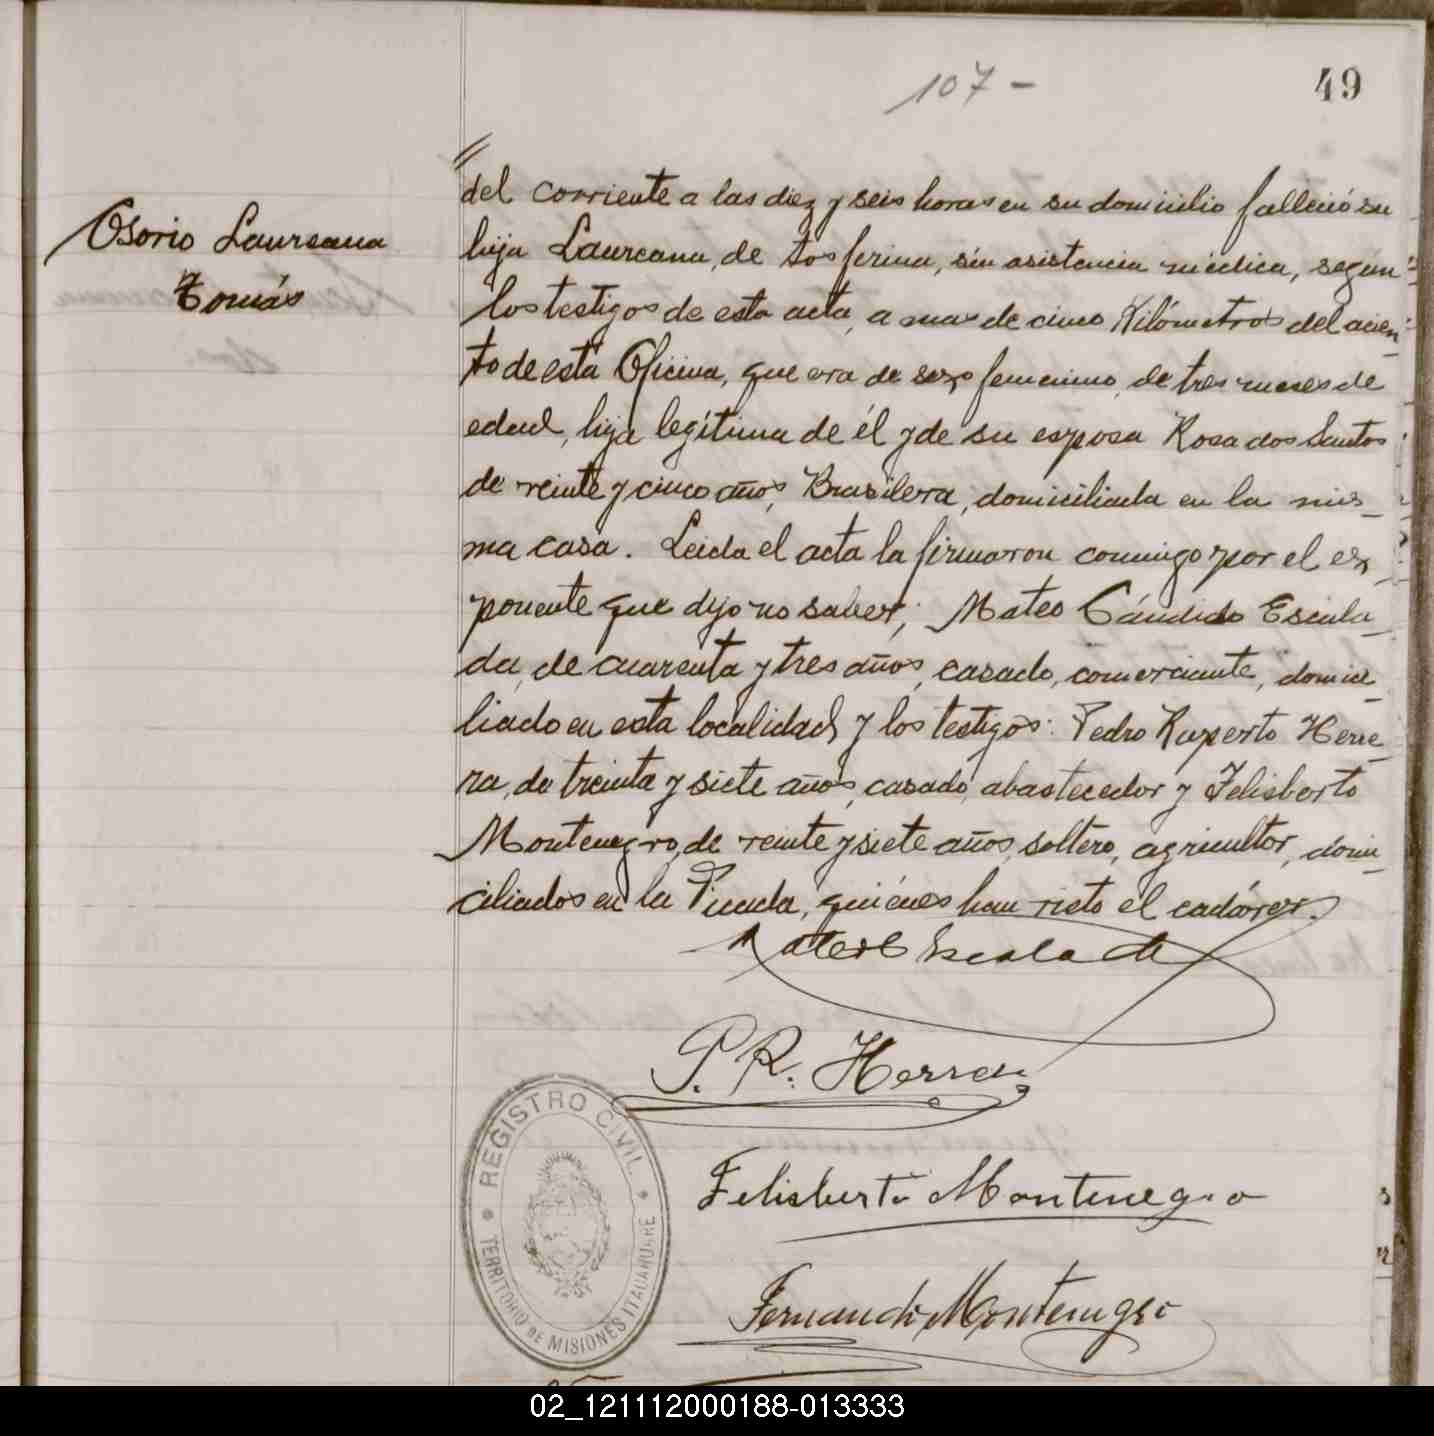 107 -
49
Osorio Laureana
Tomás
//
del corriente a las diez y seis horas en su domicilio falleció su
hija Laureana, de tos ferina, sin asistencia médica, según
los testigos de esta acta, a mas de cinco Kilómetros del acien-
to de esta Oficina, que era de sexo femenino, de tres meses de
edad, hija legítima de él y de su esposa Rosa dos Santos
de veinte y cinco años, Brasilera, domiciliada en la mis-
ma casa. Leida el acta la firmaron conmigo por el ex-
ponente que dijo no saber; Mateo Cándido Escala-
da, de cuarenta y tres años, casado, comerciante, domici-
liado en esta localidad y los testigos: Pedro Ruperto Herre-
ra, de treinta y siete años, casado, abastecedor y Felisberto
Montenegro, de veinte y siete años, soltero, agricultor, domi-
ciliados en la Picada, quiénes han visto el cadáver.
Mateo C Escalada
P. R. Herrera
Felisberto Montenegro
Fernando Montenegro
REGISTRO CIVIL
TERRITORIO DE MISIONES ITACARUARE
02_121112000188-013333